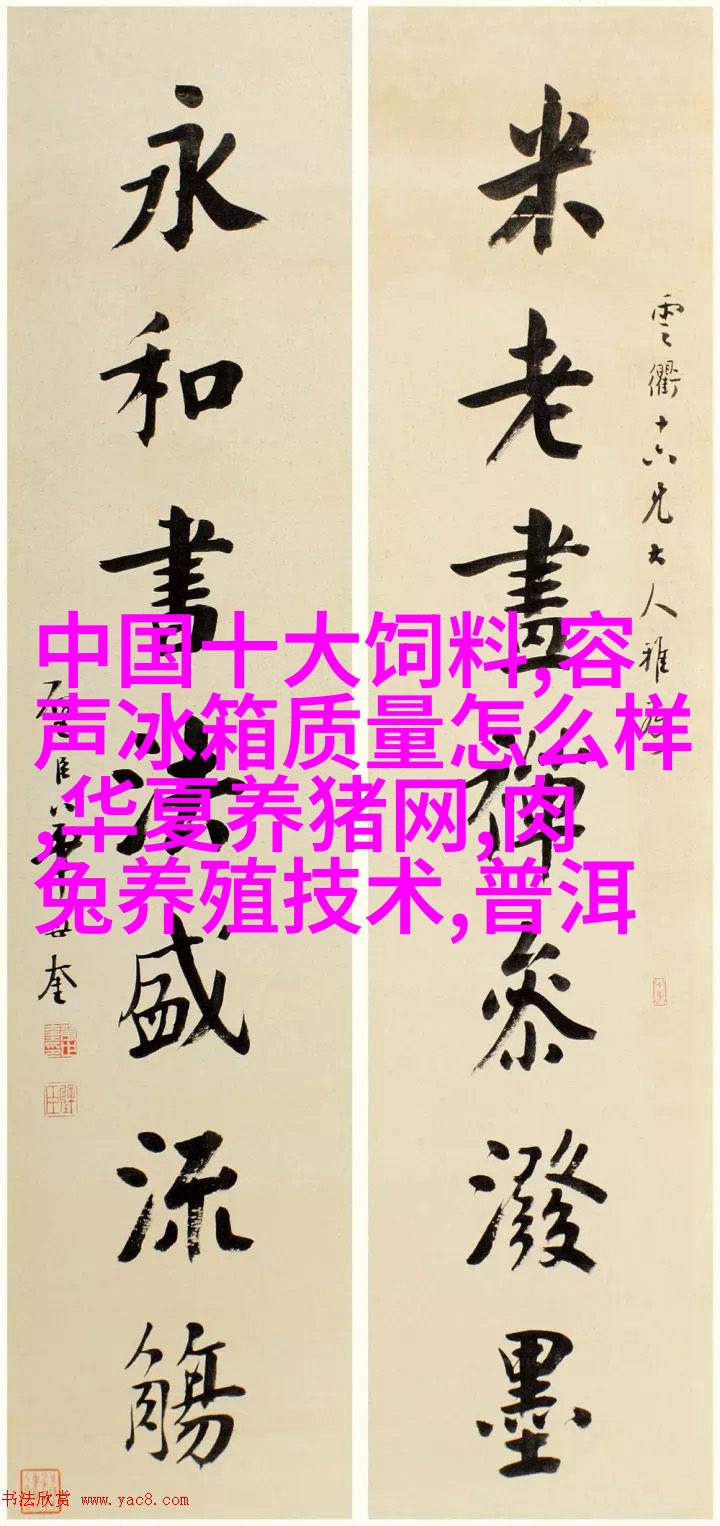 米老畫禪參潑墨
雲衢十六兄大人雅
永和書法盛流觴
奎
中国十大饲料,容
声冰箱质量怎么样
,华夏养猪网,肉
兔养殖技术,普洱
书法欣赏 www.yac8.com